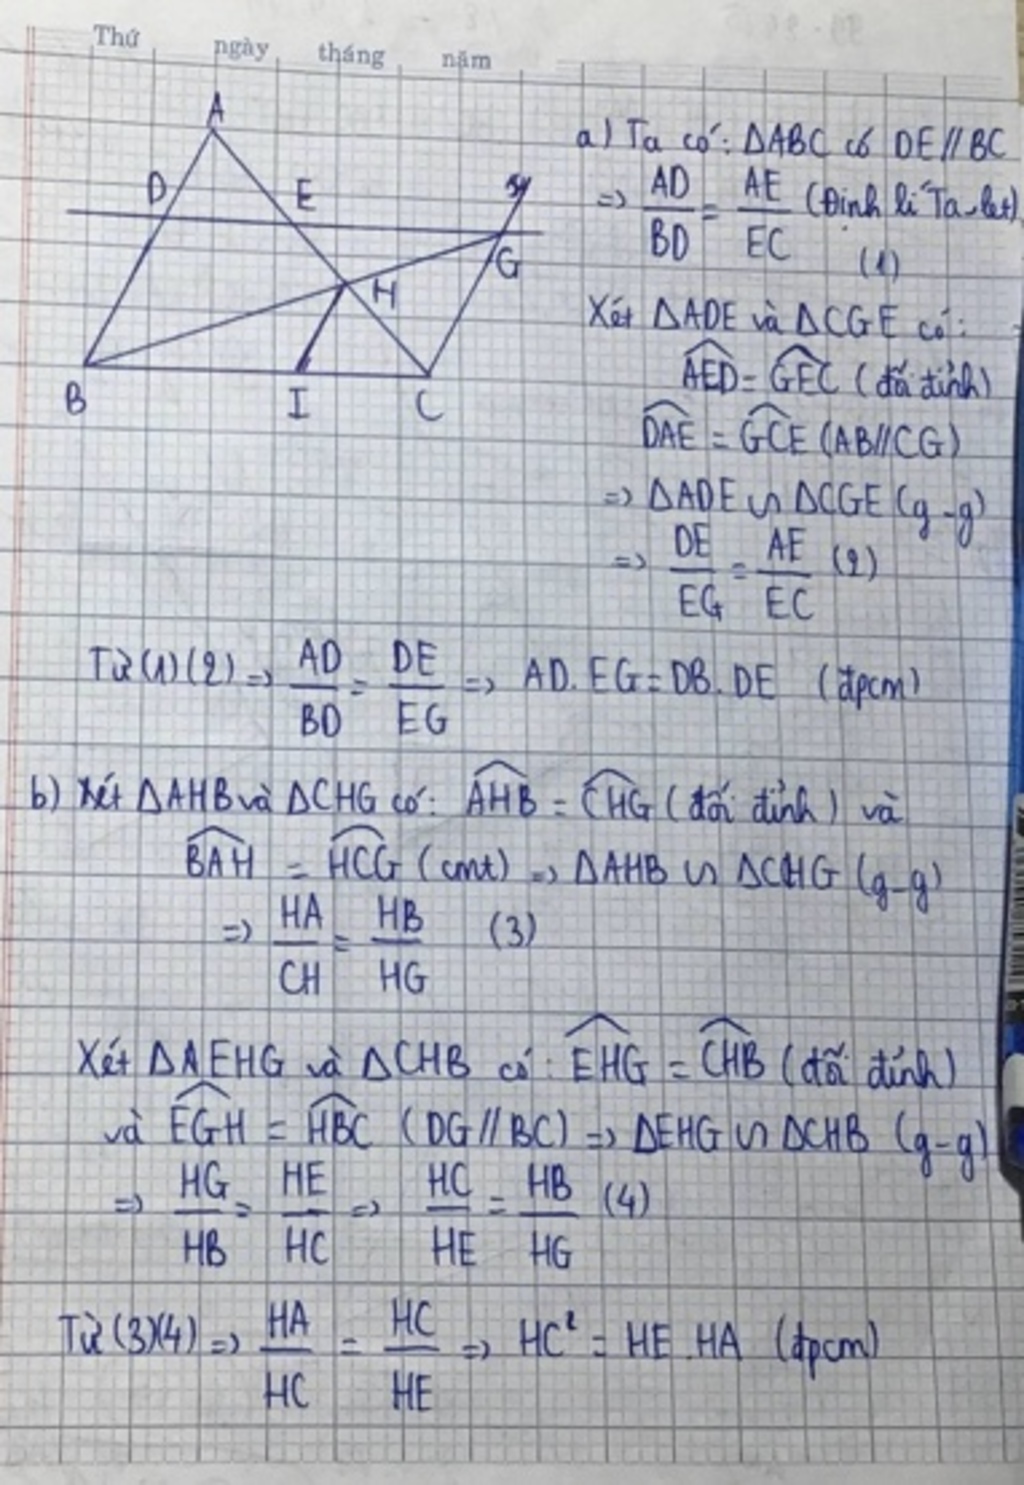 Thứ ngày tháng năm
A
D E y
G
H
B I C
a) Ta có: ΔABC có DE // BC
=> AD/BD = AE/EC (Định lí Ta-let) (1)
Xét ΔADE và ΔCGE có:
AED = GEC (đối đỉnh)
DAE = GCE (AB // CG)
=> ΔADE ∽ ΔCGE (g-g)
=> DE/EG = AE/EC (2)
Từ (1)(2) => AD/BD = DE/EG => AD.EG = DB.DE (đpcm)
b) Xét ΔAHB và ΔCHG có: AHB = CHG (đối đỉnh) và
BAH = HCG (cmt) => ΔAHB ∽ ΔCHG (g-g)
=> HA/CH = HB/HG (3)
Xét ΔAEHG và ΔCHB có: EHG = CHB (đối đỉnh)
và EGH = HBC (DG // BC) => ΔEHG ∽ ΔCHB (g-g)
=> HG/HB = HE/HC => HC/HE = HB/HG (4)
Từ (3)(4) => HA/HC = HC/HE => HC² = HE.HA (đpcm)